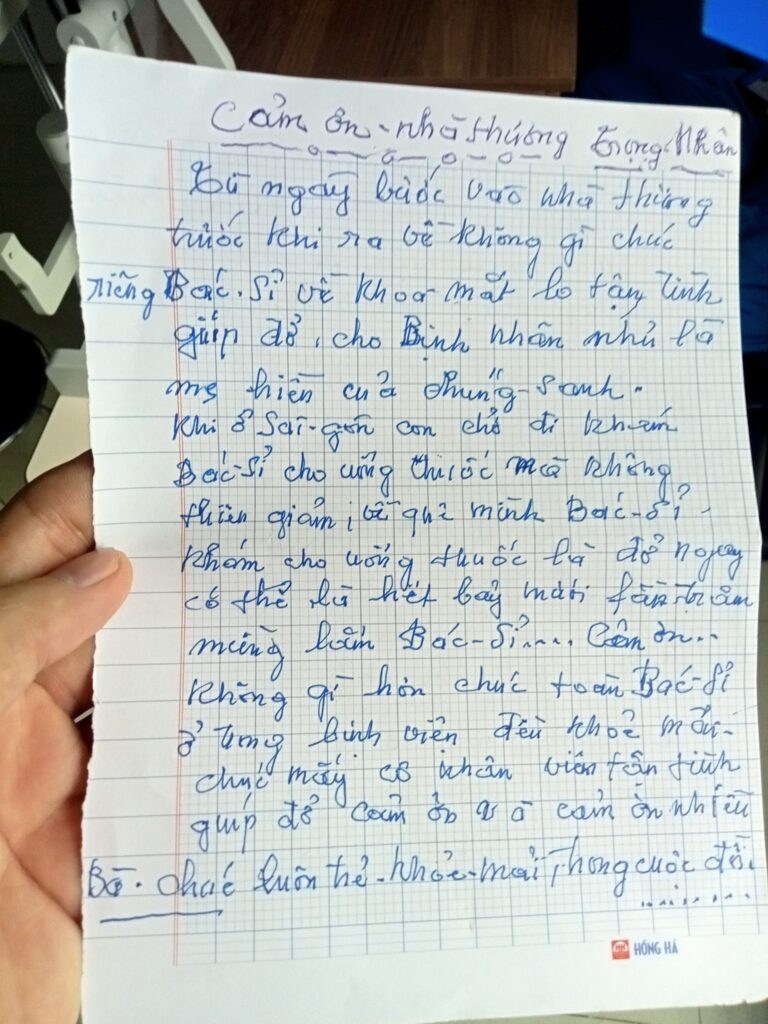 Cảm ơn - nhà thương Trọng Nhân
Từ ngày bước vào nhà thương
trước khi ra về không gì chúc
riêng Bác. Sỉ về khoa mắt lo tận tình
giúp đở, cho Bịnh nhân như là
mẹ hiền của chúng - sanh.
Khi ở Sài - gòn con chở đi khám
Bác - Sỉ cho uống thuốc mà không
thiên giảm, về quê mình Bác - Sỉ -
Khám cho uống thuốc là đở ngay
có thể là hết bảy mươi phần trăm
mừng lắm Bác - Sỉ.... Cảm ơn..
Không gì hơn chúc toàn Bác - Sỉ
ở từng bịnh viên đều khoẻ mẩn -
chúc mấy cô nhân viên tận tình
giúp đở cảm ơn và cảm ơn nhiều
Bà. chúc luôn trẻ - khỏe - mải, trong cuộc đời.
HỒNG HÀ